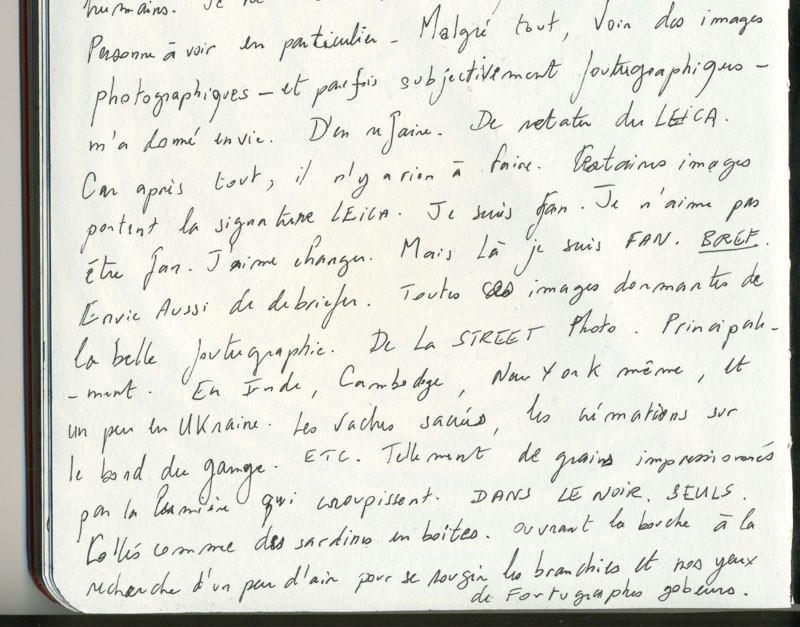 humains. Je
Personne à voir en particulier - Malgré tout, Voir des images
photographiques - et parfois subjectivement foutugraphiques -
m'a donné envie. D'en refaire. De retater du LEICA.
Car après tout, il n'y a rien à faire. Certaines images
portent la signature LEICA. Je suis fan. Je n'aime pas
être fan. J'aime changer. Mais Là je suis FAN. BREF.
Envie Aussi de debriefer. Toutes ces images dormantes de
la belle foutugraphie. De La STREET Photo. Principale-
-ment. En Inde, Cambodge, New York même, et
un peu en UKraine. Les vaches sacrées, les crémations sur
le bord du gange. ETC. Tellement de grains impressionnés
par la Lumière qui croupissent. DANS LE NOIR. SEULS.
Collés comme des sardines en boites. ouvrant la bouche à la
recherche d'un peu d'air pour se rougir les branchies et nos yeux
de Fortugraphes gobeurs.